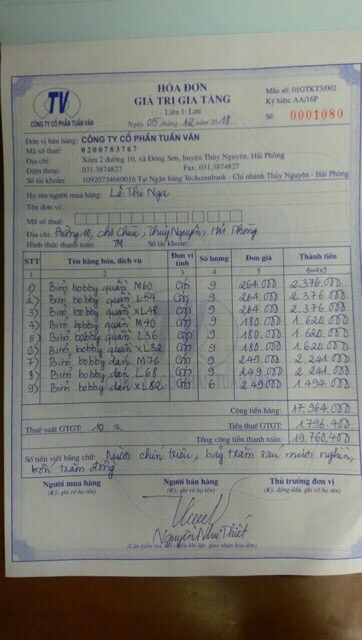 TV
CÔNG TY CỔ PHẦN TUẤN VÂN
HÓA ĐƠN
GIÁ TRỊ GIA TĂNG
Liên 1: Lưu
Ngày 05 tháng 12 năm 2018
Mẫu số: 01GTKT3/002
Ký hiệu: AA/16P
Số: 0001080
Đơn vị bán hàng: CÔNG TY CỔ PHẦN TUẤN VÂN
Mã số thuế: 0200783767
Địa chỉ: Xóm 2 đường 10, xã Đông Sơn, huyện Thủy Nguyên, Hải Phòng
Điện thoại: 031.3874827 Fax: 031.3874827
Số tài khoản: 10920734669016 Tại Ngân hàng Techcombank - Chi nhánh Thủy Nguyên - Hải Phòng
Họ tên người mua hàng: Lê Thị Nga
Tên đơn vị:
Mã số thuế:
Địa chỉ: Đường 10, chợ Thủy Nguyên, Hải Phòng
Hình thức thanh toán: TM Số tài khoản:
STT Tên hàng hóa, dịch vụ Đơn vị tính Số lượng Đơn giá Thành tiền
1 2 3 4 5 6=4x5
1) Bỉm bobby quần M60 Gói 9 264.000 2.376.000
2) Bỉm bobby quần L54 Gói 9 264.000 2.376.000
3) Bỉm bobby quần XL48 Gói 9 264.000 2.376.000
4) Bỉm bobby quần M40 Gói 9 180.000 1.620.000
5) Bỉm bobby quần L36 Gói 9 180.000 1.620.000
6) Bỉm bobby quần XL32 Gói 9 180.000 1.620.000
7) Bỉm bobby dán M76 Gói 9 249.000 2.241.000
8) Bỉm bobby dán L68 Gói 9 249.000 2.241.000
9) Bỉm bobby dán XL62 Gói 6 249.000 1.494.000
Cộng tiền hàng: 17.964.000
Thuế suất GTGT: 10 % Tiền thuế GTGT: 1.796.400
Tổng cộng tiền thanh toán: 19.760.400
Số tiền viết bằng chữ: Mười chín triệu, bảy trăm sáu mươi nghìn,
bốn trăm đồng
Người mua hàng Người bán hàng Thủ trưởng đơn vị
(Ký, ghi rõ họ tên) (Ký, ghi rõ họ tên) (Ký, đóng dấu, ghi rõ họ tên)
Nguyễn Như Thiết
(Cần kiểm tra, đối chiếu khi lập, giao nhận hóa đơn)